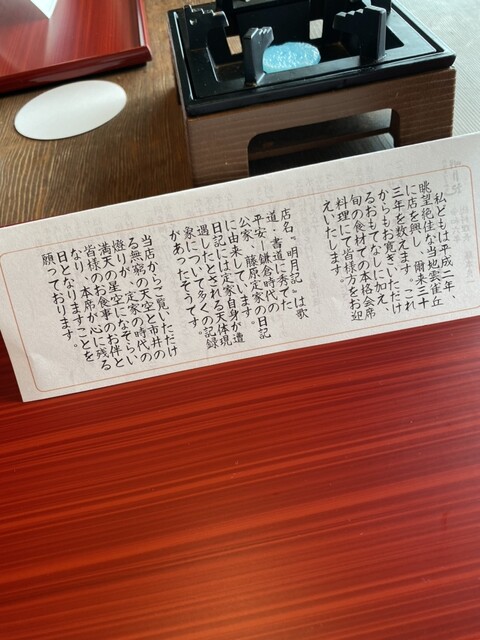 私どもは平成二年、
眺望絶佳な当地雲雀丘
に店を興し、爾来三十
三年を数えます。これ
からもお寛ぎいただけ
るおもてなしに加え、
旬の食材での本格会席
料理にて皆様方をお迎
えいたします。
店名『明月記』は歌
道・書道に秀でた
平安ー鎌倉時代の
公家、藤原定家の日記
に由来しています。
日記には定家自身が遭
遇したとされる天体現
象について多くの記録
があったそうです。
当店からご覧いただけ
る無窮の天空と市井の
燈りが、定家の時代の
満天の星空になぞらい
皆様のお食事のお伴と
なり、本席が心に残る
日となりますことを
願っております。